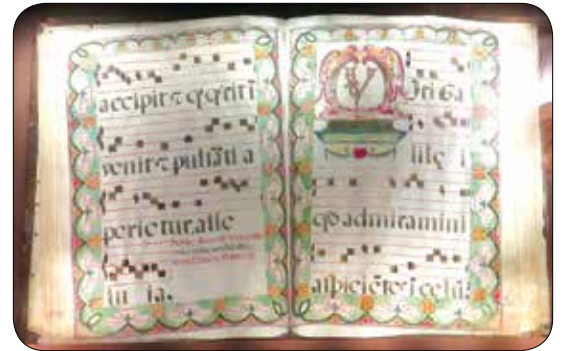 accipit ⁊ q̄ q̄rit ī
venit ⁊ pulsāti a
perietur. alle
lu ia.
Viri Ga
lilę i
qd admiramini
aspiciētes ī celū: